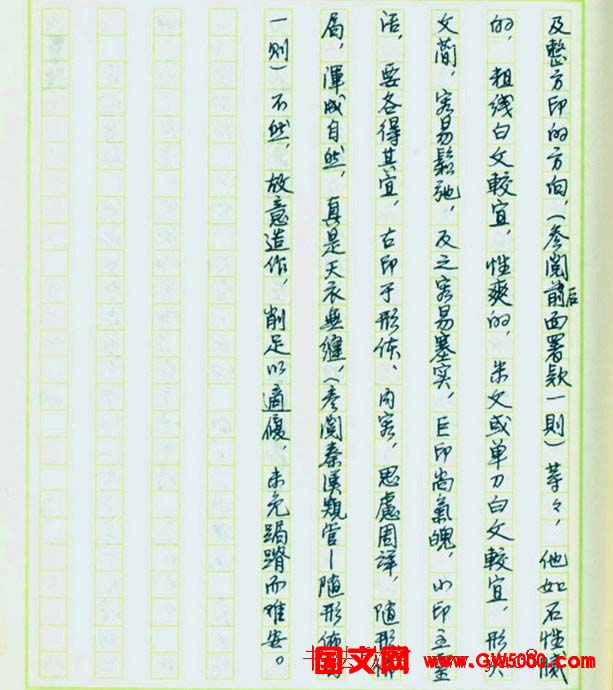 及整方印的方向，（参阅前后面署款一则）等々，他如石性咸
的，粗线白文較宜，性爽的，朱文或单刀白文較宜，形大
文简，容易鬆弛，反之容易塞实，巨印尚氣魄，小印主
活，要各得其宜，古印于形体、内容，思慮周详，随形佈
局，渾成自然，真是天衣無縫，（参阅秦漢窺管—随形佈局
一则）不然，故意造作，削足以適履，未免跼蹐而难安。
国文网 www.GW5000.com